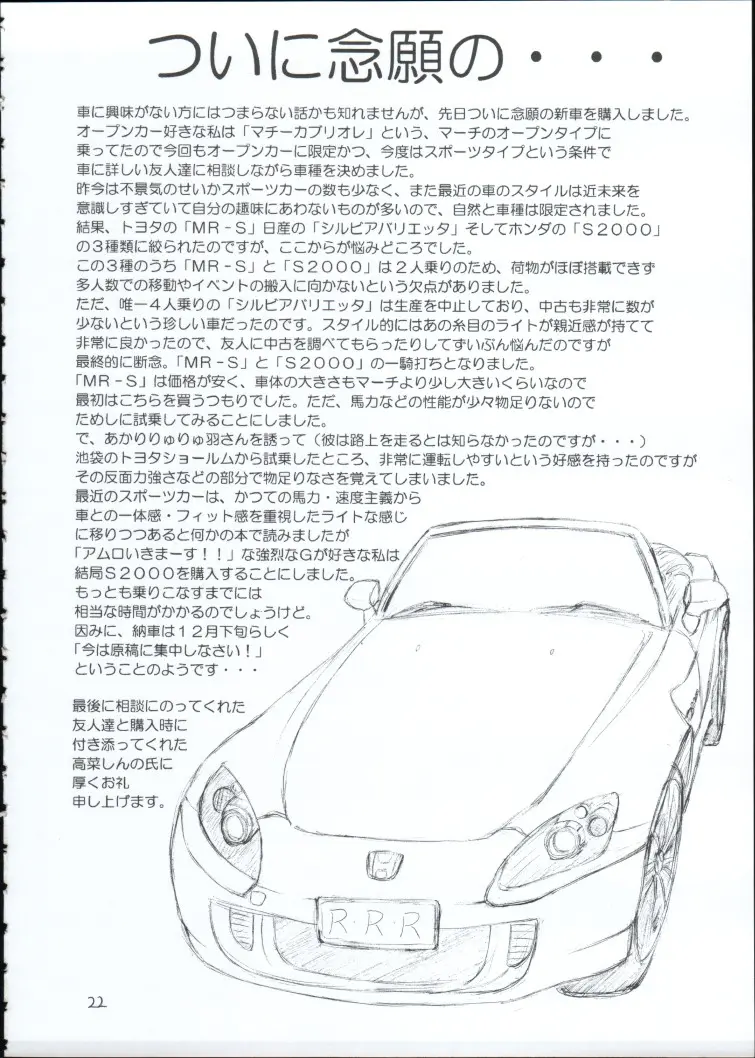 ついに念願の・・・
車に興味がない方にはつまらない話かも知れませんが、先日ついに念願の新車を購入しました。
オープンカー好きな私は「マチーカブリオレ」という、マーチのオープンタイプに
乗ってたので今回もオープンカーに限定かつ、今度はスポーツタイプという条件で
車に詳しい友人達に相談しながら車種を決めました。
昨今は不景気のせいかスポーツカーの数も少なく、また最近の車のスタイルは近未来を
意識しすぎていて自分の趣味にあわないものが多いので、自然と車種は限定されました。
結果、トヨタの「MR-S」日産の「シルビアバリエッタ」そしてホンダの「S2000」
の3種類に絞られたのですが、ここからが悩みどころでした。
この3種のうち「MR-S」と「S2000」は2人乗りのため、荷物がほぼ搭載できず
多人数での移動やイベントの搬入に向かないという欠点がありました。
ただ、唯一4人乗りの「シルビアバリエッタ」は生産を中止しており、中古も非常に数が
少ないという珍しい車だったのです。スタイル的にはあの糸目のライトが親近感が持てて
非常に良かったので、友人に中古を調べてもらったりしてずいぶん悩んだのですが
最終的に断念。「MR-S」と「S2000」の一騎打ちとなりました。
「MR-S」は価格が安く、車体の大きさもマーチより少し大きいくらいなので
最初はこちらを買うつもりでした。ただ、馬力などの性能が少々物足りないので
ためしに試乗してみることにしました。
で、あかりりゅりゅ羽さんを誘って(彼は路上を走るとは知らなかったのですが・・・)
池袋のトヨタショールムから試乗したところ、非常に運転しやすいという好感を持ったのですが
その反面力強さなどの部分で物足りなさを覚えてしまいました。
最近のスポーツカーは、かつての馬力・速度主義から
車との一体感・フィット感を重視したライトな感じ
に移りつつあると何かの本で読みましたが
「アムロいきまーす!!」な強烈なGが好きな私は
結局S2000を購入することにしました。
もっとも乗りこなすまでには
相当な時間がかかるのでしょうけど。
因みに、納車は12月下旬らしく
「今は原稿に集中しなさい!」
ということのようです・・・
最後に相談にのってくれた
友人達と購入時に
付き添ってくれた
高菜しんの氏に
厚くお礼
申し上げます。
R・R・R
22